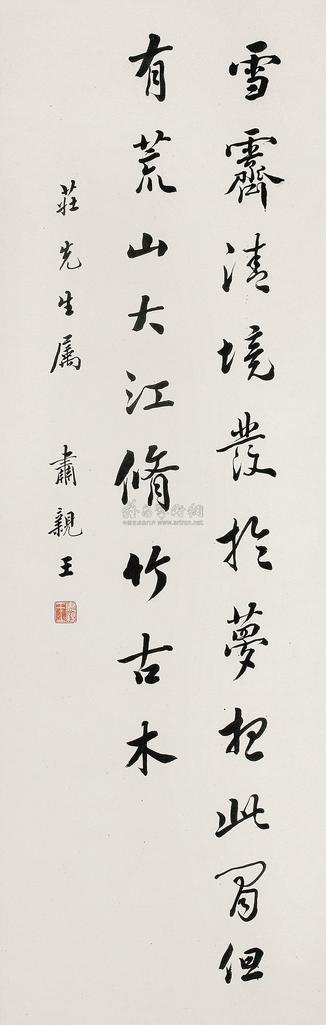 雪霽清境發於夢想此間但
有荒山大江脩竹古木
莊先生屬 肅親王